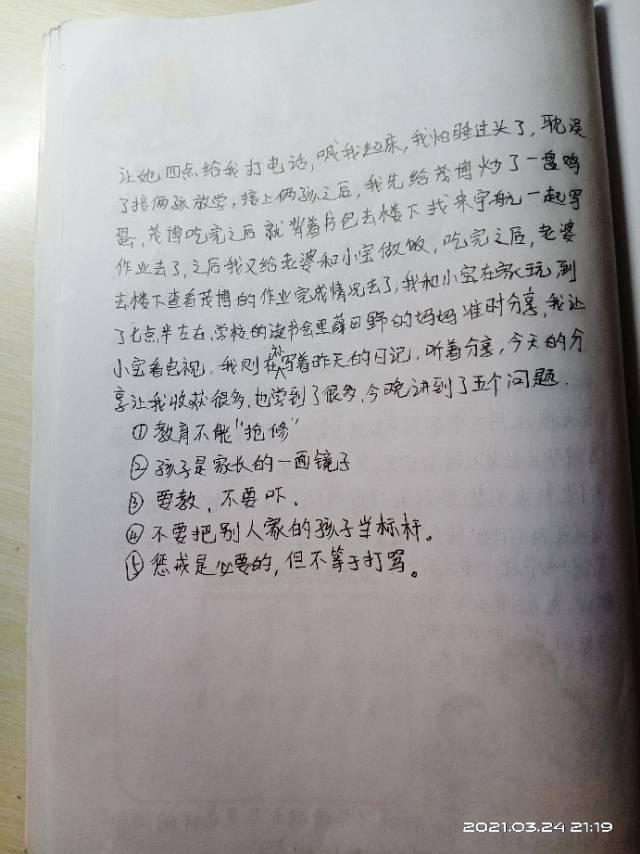 让她四点给我打电话，喊我起床，我怕睡过头了，耽误
了接俩孩放学，接上俩孩之后，我先给茂博炒了一盘鸡
蛋，茂博吃完之后就背着书包去楼下找来宇航一起写
作业去了，之后我又给老婆和小宝做饭，吃完之后，老婆
去楼下查看茂博的作业完成情况去了，我和小宝在家玩，到
了七点半左右，学校的读书会里薛日野的妈妈准时分享，我让
小宝看电视，我则在补写着昨天的日记，听着分享，今天的分
享让我收获很多，也学到了很多，今晚讲到了五个问题．
①教育不能“抢修”
②孩子是家长的一面镜子
③要教，不要吓．
④不要把别人家的孩子当标杆。
⑤惩戒是必要的，但不等于打骂。
2021.03.24 21:19